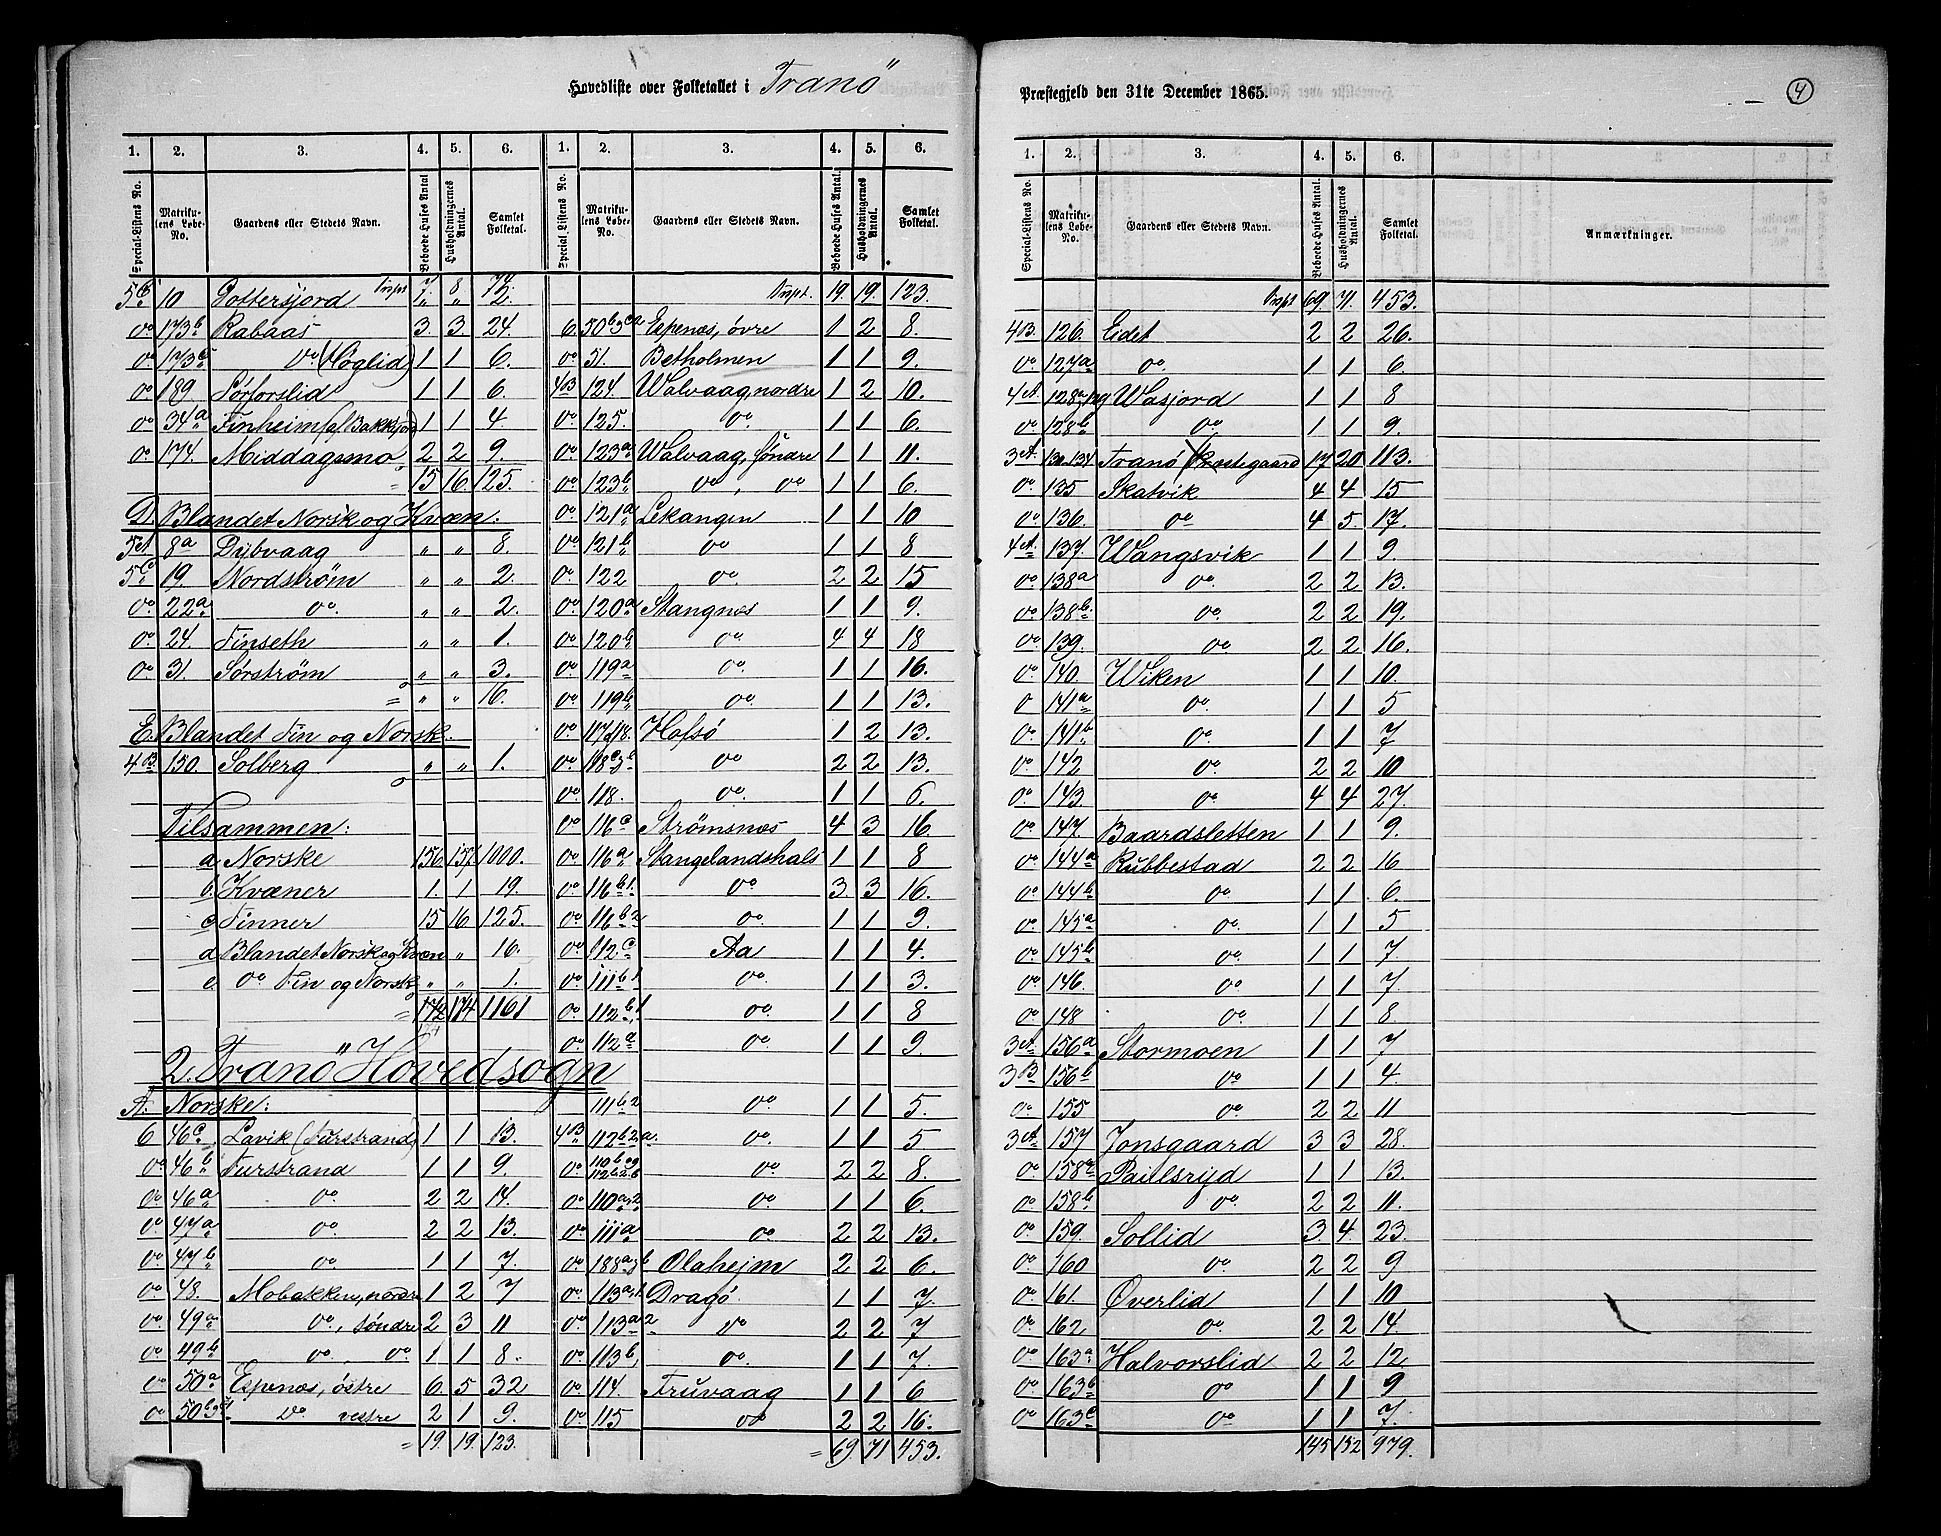 Hovedliste over Folketallet i Tranö
1. 2. 3. 4. 5. 6. 1. 2. 3. 4. 5. 6.
Special-Listens No. Matrikulens Løbe-No. Gaardens eller Stedets Navn. Beboede Huses Antal Husholdningernes Antal. Samlet Folketal. Special Listens No. Matrikulens Løbe-No. Gaardens eller Stedets Navn. Beboede Huses Antal. Husholdningernes Antal. Samlet Folketal.
Trspt 7. 8 72.
5B 10 Gottersjord " " 2.
do 173b Rabaas 3. 3. 24.
do 173c do (Høglid) 1 1 6.
do 189 Sørforslid 1 1 6.
do 34a Finheim (a) Bakkejord 1 1 4
do 174. Middagsmo 2 2 9.
= 15 16. 125.
D. Blandet Norsk og Kvæn:
5A 8a Dybvaag " " 8.
5C 19. Nordstrøm " " 2.
do 22a do. " " 2.
do 24. Finseth " " 1.
do 31. Sørstrøm " " 3.
= " " 16.
E. Blandet Fin og Norsk.
4B 150. Solberg " " 1.
Tilsammen:
a Norske 156. 157 1000.
b. Kvæner 1. 1 19.
c Finner 15 16 125.
d Blandet Norsk og Kvæn " 16.
e. do Fin og Norsk " " 1.
= 172 174 1161
174
2. Tranö Hovedsogn
A. Norske:
6 46c. Lavik (Furstrand) 1 1 13.
do 46b Furstrand 1 1 9.
do 46a do. 2 2 14.
do 47a do. 2 2 13.
do 47b do. 1 1 7.
do 48. Mobakken, nordre 1 2 7
do 49a do., søndre 2 3 11
do 49b do. do. 1 1 8.
do 50a Espenæs, østre 6. 5 32
do 50b do vestre 2 1 9.
= 19. 19. 123.
Trspt. 19. 19. 123.
6. 50 Espenæs, øvre 1 2 8.
do 51. Betholmen 1 1 9.
4B 124. Walvaag, nordre 1 2 10.
do 125. do. 1 1 6.
do 123a Walvaag, søndre 1 1 11.
do 123b do, do 1 1 6.
do 121a Lekangen 1 1 10
do 121b do 1 1 8
do 122 do. 2 2 15
do 120a Stangnæs 1 1 9.
do 120b do. 4 4 18
do 119a do. 1 1 16.
do 119b do. 1 1 13.
do 117,118. Hofsø 1 2 13.
do 118 do 2 2 13.
do 118. do. 1 1 5.
do 116c Strømsnæs 4 3 16.
do 116a Stangelandshals 1 1 8
do 116b1. do 3. 3 16.
do 116b2 do 1 1 9.
do 112c Aa 1 1 4.
do 111b1 do. 1 1 3.
do 112b1 do. 1 1 8
do 112a do. 1 1 9.
111b2 do 1 1 5.
4B 112b2a. do. 1 1 5
do 110b og 112b2b do 2 2 8.
do 110a2 do. 1 1 6.
do 111a do 2 2 13.
do 188a Olaheim 2 2 6.
do 113a1 Dragø. 1 1 7.
do 113a2 do 2 2 7
do 113b do. 1 1 7.
do 114. Fruvaag 1 1 6
do 115 do 2 2 16.
= 69. 71 453.
Præstegjeld den 31te December 1865.
4
1. 2. 3. 4. 5. 6.
Special-Listens No. Matrikulens Løbe-No. Gaardens eller Stedets Navn. Beboede Huses Antal. Husholdningernes Antal. Samlet Folketal. Anmærkninger.
Trspt 69. 71. 453.
4B. 126. Eidet 2 2 26.
do 127a do. 1 1 6.
4A 128a,129 Wasjord 1 1 8
do 128b do. 1 1 9.
3A 130.134 Tranö Præstegaard 17 20 113.
do 135 Skatvik 4 4 15
do 136. do 4 5 17.
4A. 137. Wangsvik 1 1 9
do 138a do. 2 2 13.
do 138b. do. 2 2 19.
do 139. do 2 2 16.
do 140. Wiken 1 1 10.
do 141a do. 1 1 5
do 141b do. 1 1 7
do 142 do. 2 2 10
do 143. do. 4 4 27.
do 147. Baardsletten 1 1 9.
do 144a Rubbestad 2 2 16
do 144b do. 1 1 6.
do 145a do. 1 1 5
do 145b do. 1 1 7.
do 146 do. 1 1 7
do 148 do. 1 1 8.
3A. 156a Stormoen 1 1 7
3B 156b do 1 1 4.
do 155 do 2 2 11
3A 157 Jonsgaard 3 3 28.
do 158a Paulsrud 1 1 13.
do 158b do. 2 2 11.
do 159. Sollid 3 4 23.
do 160 do. 2 2 9
do 161. Øverlid 1 1 10
do 162 do. 2 2 14.
do 163a. Halvorslid 2 2 12
do 163b do 1 1 9
do 163c do 1 1 7.
145 152 979.